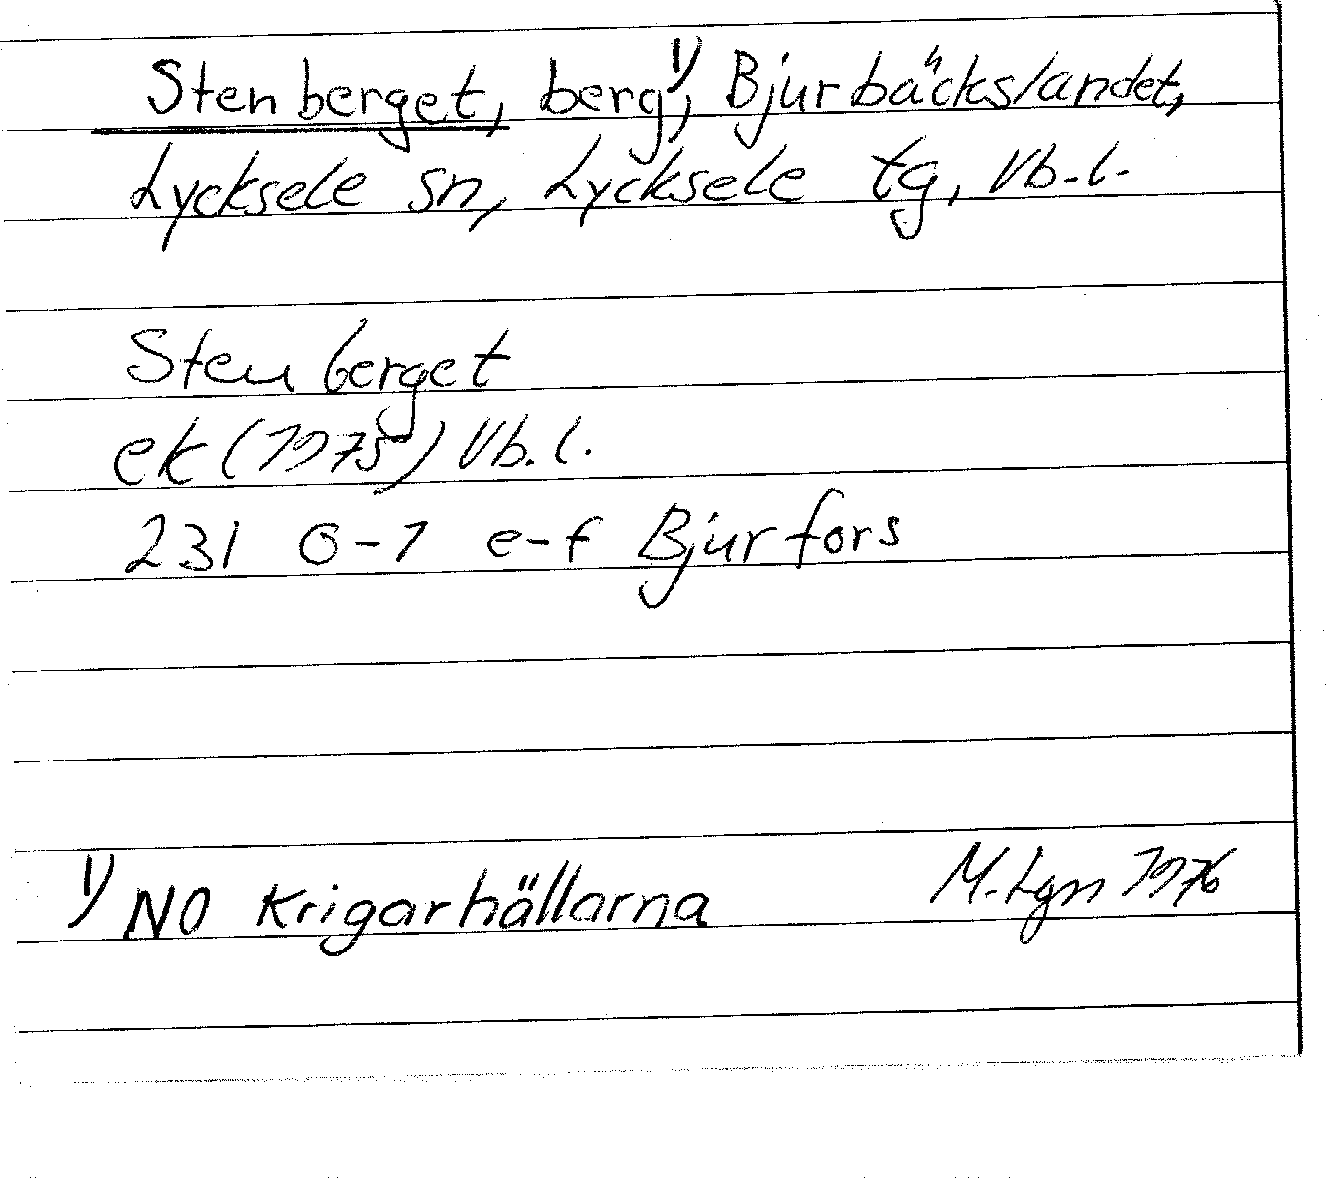 Stenberget, berg¹⁾, Bjurbäckslandet,
Lycksele sn, Lycksele tg, Vb.l.
Stenberget
ek (1975) Vb.l.
231 0-1 e-f Bjurfors
¹⁾ NO Krigarhällarna M. Lgn 1976